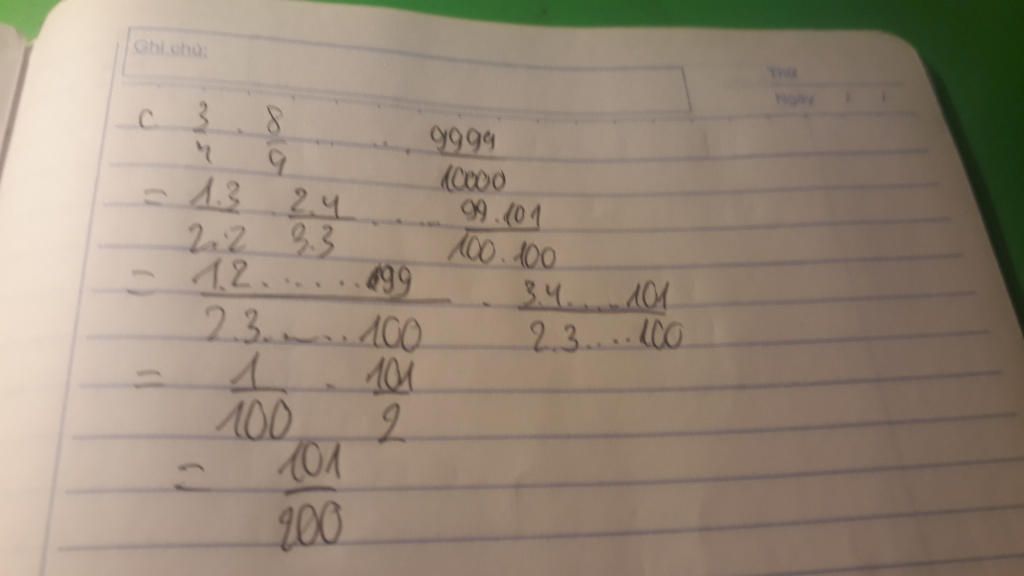 Ghi chú:
Thứ
Ngày / /
c 3/4 . 8/9 ..... 9999/10000
= 1.3/2.2 . 2.4/3.3 ..... 99.101/100.100
= 1.2.......99/2.3.......100 . 3.4.....101/2.3....100
= 1/100 . 101/2
= 101/200